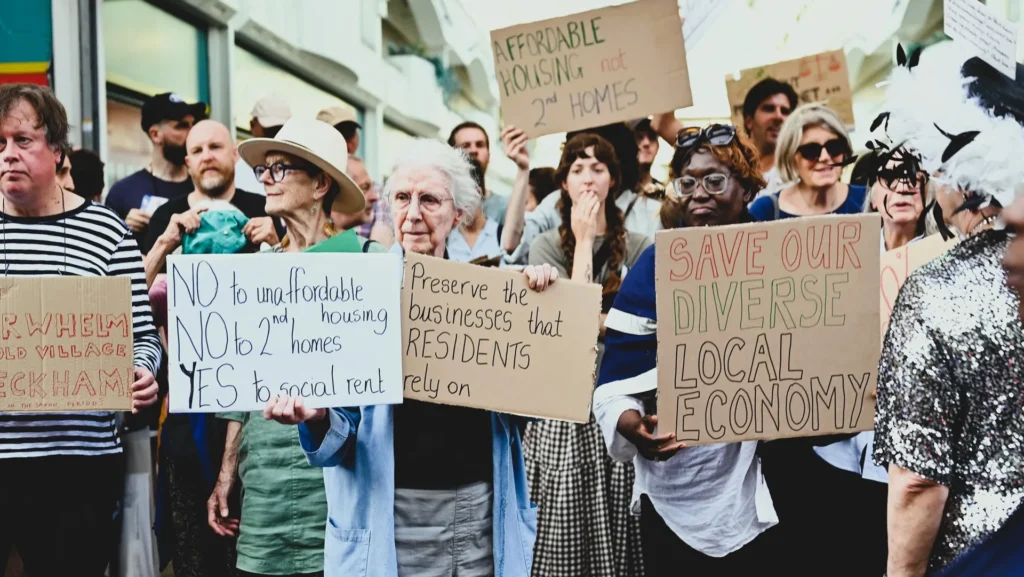 AFFORDABLE
HOUSING not
2nd HOMES
NO to unaffordable
housing
NO to 2nd homes
YES to social rent
Preserve the
businesses that
RESIDENTS
rely on
SAVE OUR
DIVERSE
LOCAL
ECONOMY
RWHELM
OLD VILLAGE
ECKHAM